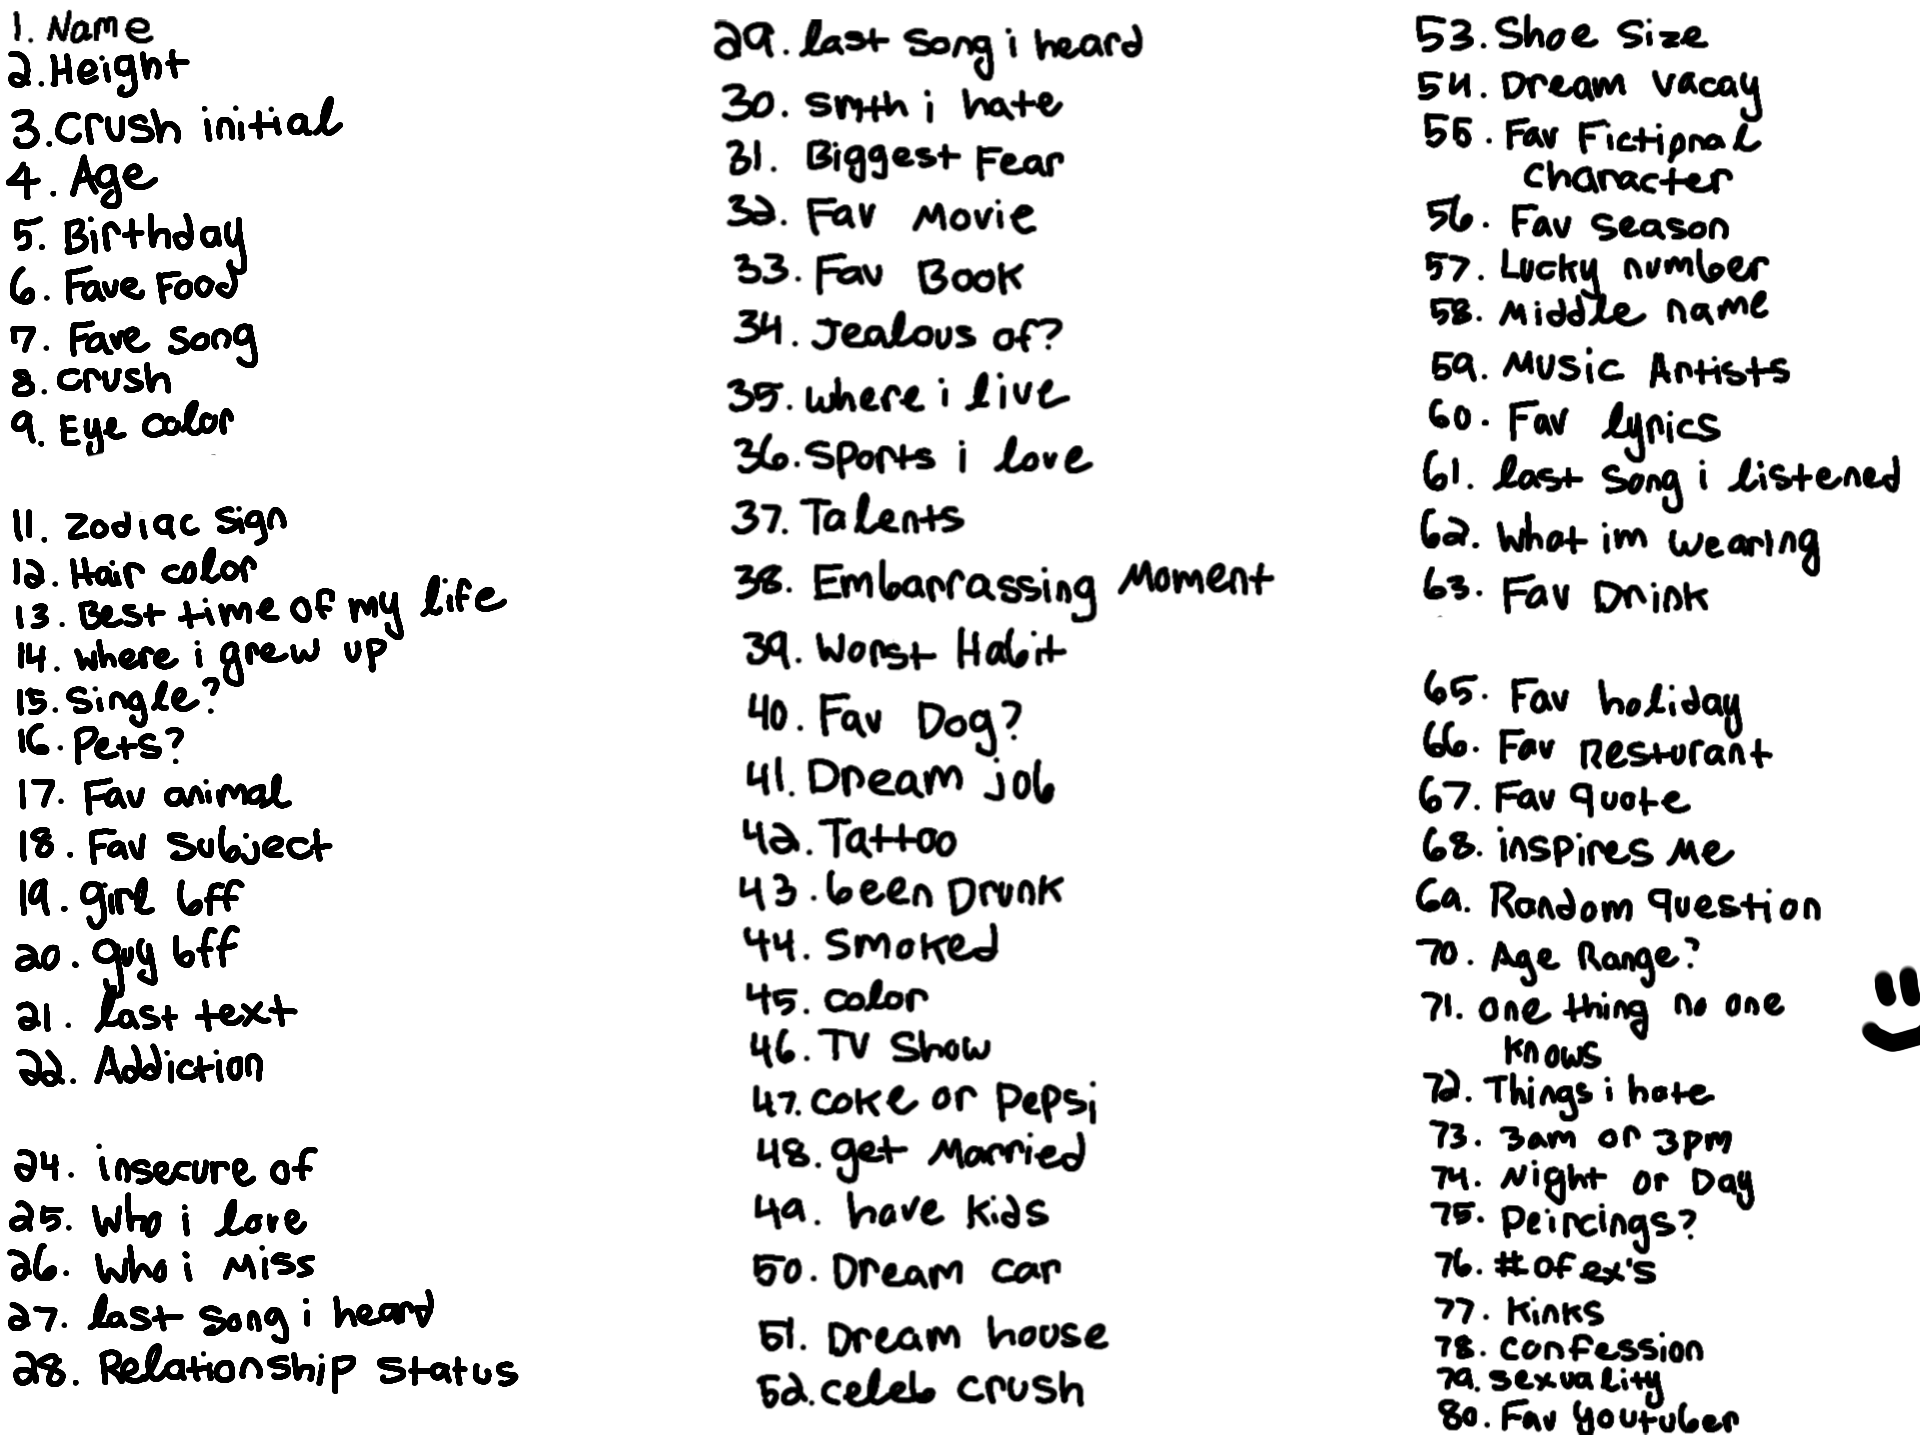 1. Name
2. Height
3. Crush initial
4. Age
5. Birthday
6. Fave Food
7. Fave song
8. crush
9. Eye color
11. Zodiac Sign
12. Hair color
13. Best time of my life
14. where i grew up
15. Single?
16. Pets?
17. Fav animal
18. Fav subject
19. girl bff
20. guy bff
21. last text
22. Addiction
24. insecure of
25. Who i love
26. Who i Miss
27. last song i heard
28. Relationship status
29. last song i heard
30. smth i hate
31. Biggest Fear
32. Fav Movie
33. Fav Book
34. Jealous of?
35. where i live
36. Sports i love
37. Talents
38. Embarrassing Moment
39. Worst Habit
40. Fav Dog?
41. Dream job
42. Tattoo
43. been Drunk
44. Smoked
45. color
46. TV Show
47. coke or Pepsi
48. get Married
49. have kids
50. Dream car
51. Dream house
52. celeb crush
53. Shoe Size
54. Dream vacay
55. Fav Fictional
character
56. Fav season
57. Lucky number
58. Middle name
59. Music Artists
60. Fav lyrics
61. last song i listened
62. What im wearing
63. Fav Drink
65. Fav holiday
66. Fav Resturant
67. Fav quote
68. inspires Me
69. Random question
70. Age Range?
71. one thing no one
knows
72. Things i hate
73. 3am or 3pm
74. Night or Day
75. Peircings?
76. # of ex's
77. Kinks
78. confession
79. sexuality
80. Fav youtuber